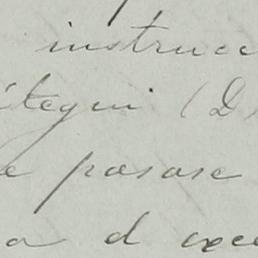 instrucc
itegui (D.
e pasase
a d exce